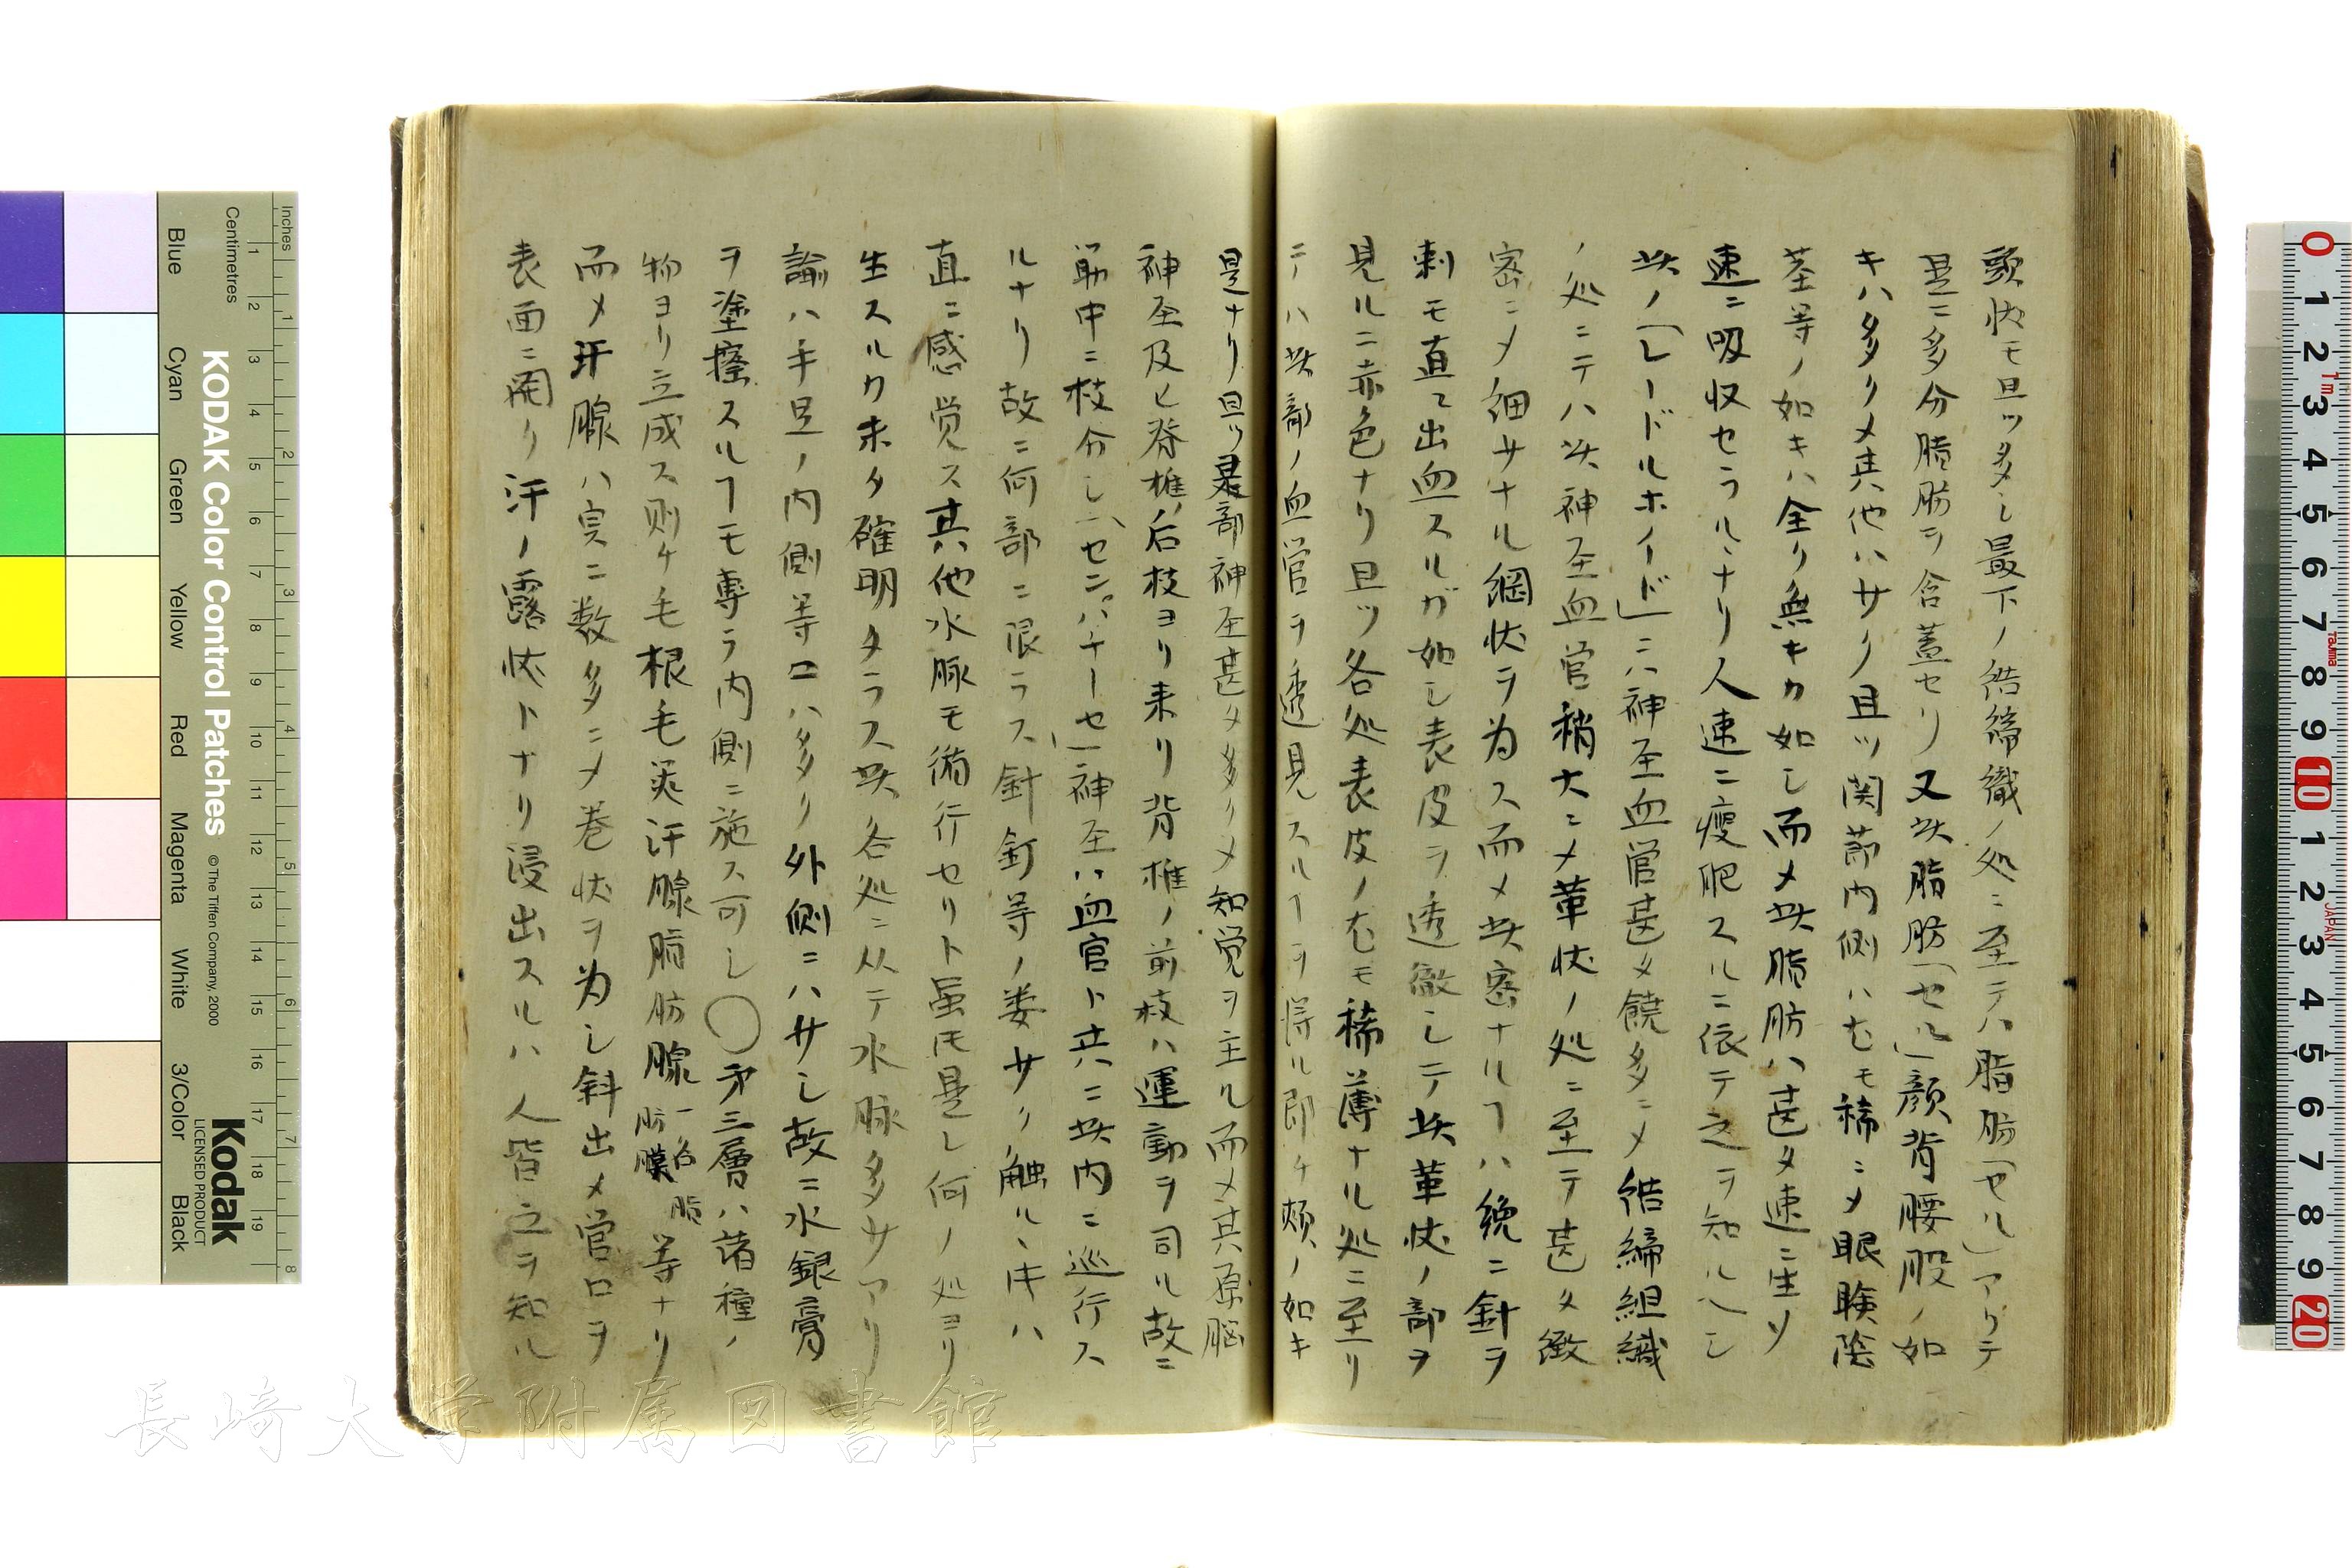 頭状モ且ツ多シ最下ノ結締織ノ処ニ至テハ脂肪「セル」アツテ
是ニ多分脂肪ヲ含蓋セリ又此脂肪「セル」顔背腰股ノ如
キハ多クメ其他ハサク且ツ関節内側ハ尤モ稀ニメ眼瞼陰
茎等ノ如キハ全ク無キカ如シ而メ此脂肪ハ甚タ速ニ生ソ
速ニ吸収セラルヽナリ人速ニ痩肥スルニ依テ之ヲ知ルヘシ
此ノ「レードルホイド」ニハ神圣血管甚タ饒多ニメ結締組織
ノ処ニテハ此神圣血管稍大ニメ革状ノ処ニ至テ甚タ緻
密ニメ細サナル網状ヲ為ス而メ此密ナルヿハ纔ニ針ヲ
刺モ直ニ出血スルガ如シ表皮ヲ透徹シテ此革状ノ部ヲ
見ルニ赤色ナリ且ツ各処表皮ノ尤モ稀薄ナル処ニ至リ
テハ此部ノ血管ヲ透見スルヿヲ得ル即チ頬ノ如キ
是ナリ且ツ是部神圣甚タ多クメ知覚ヲ主ル而メ其原脳
神圣及ヒ脊椎后枝ヨリ来リ背椎ノ前枝ハ運動ヲ司ル故ニ
筋中ニ枝分シ「センパチーセ」神圣ハ血官ト共ニ此内ニ巡行ス
ルナリ故ニ何部ニ限ラス針釘等ノ娄サク触ルヽ𪜈ハ
直ニ感覚ス其他水脉モ循行セリト虽𪜈是レ何ノ処ヨリ
生スルカ未タ確明タラス此ノ各処ニ从テ水脉多サアリ
諭ハ手足ノ内側等ニハ多ク外側ニハサシ故ニ水銀膏
ヲ塗擦スルヿモ専ラ内側ニ施ス可シ〇第三層ハ諸種ノ
物ヨリ立成ス則チ毛根毛嚢汗腺脂肪腺一名脂肪膜等ナリ
而メ汗腺ハ実ニ数多ニメ巻状ヲ為シ斜出メ管口ヲ
表面ニ開ク汗ノ露状トナリ浸出スルハ人皆之ヲ知ル
Inches
Centimetres
KODAK Color Control Patches
© The Tiffen Company, 2000
Kodak
LICENSED PRODUCT
Blue
Cyan
Green
Yellow
Red
Magenta
White
3/Color
Black
長崎大学附属図書館
JAPAN